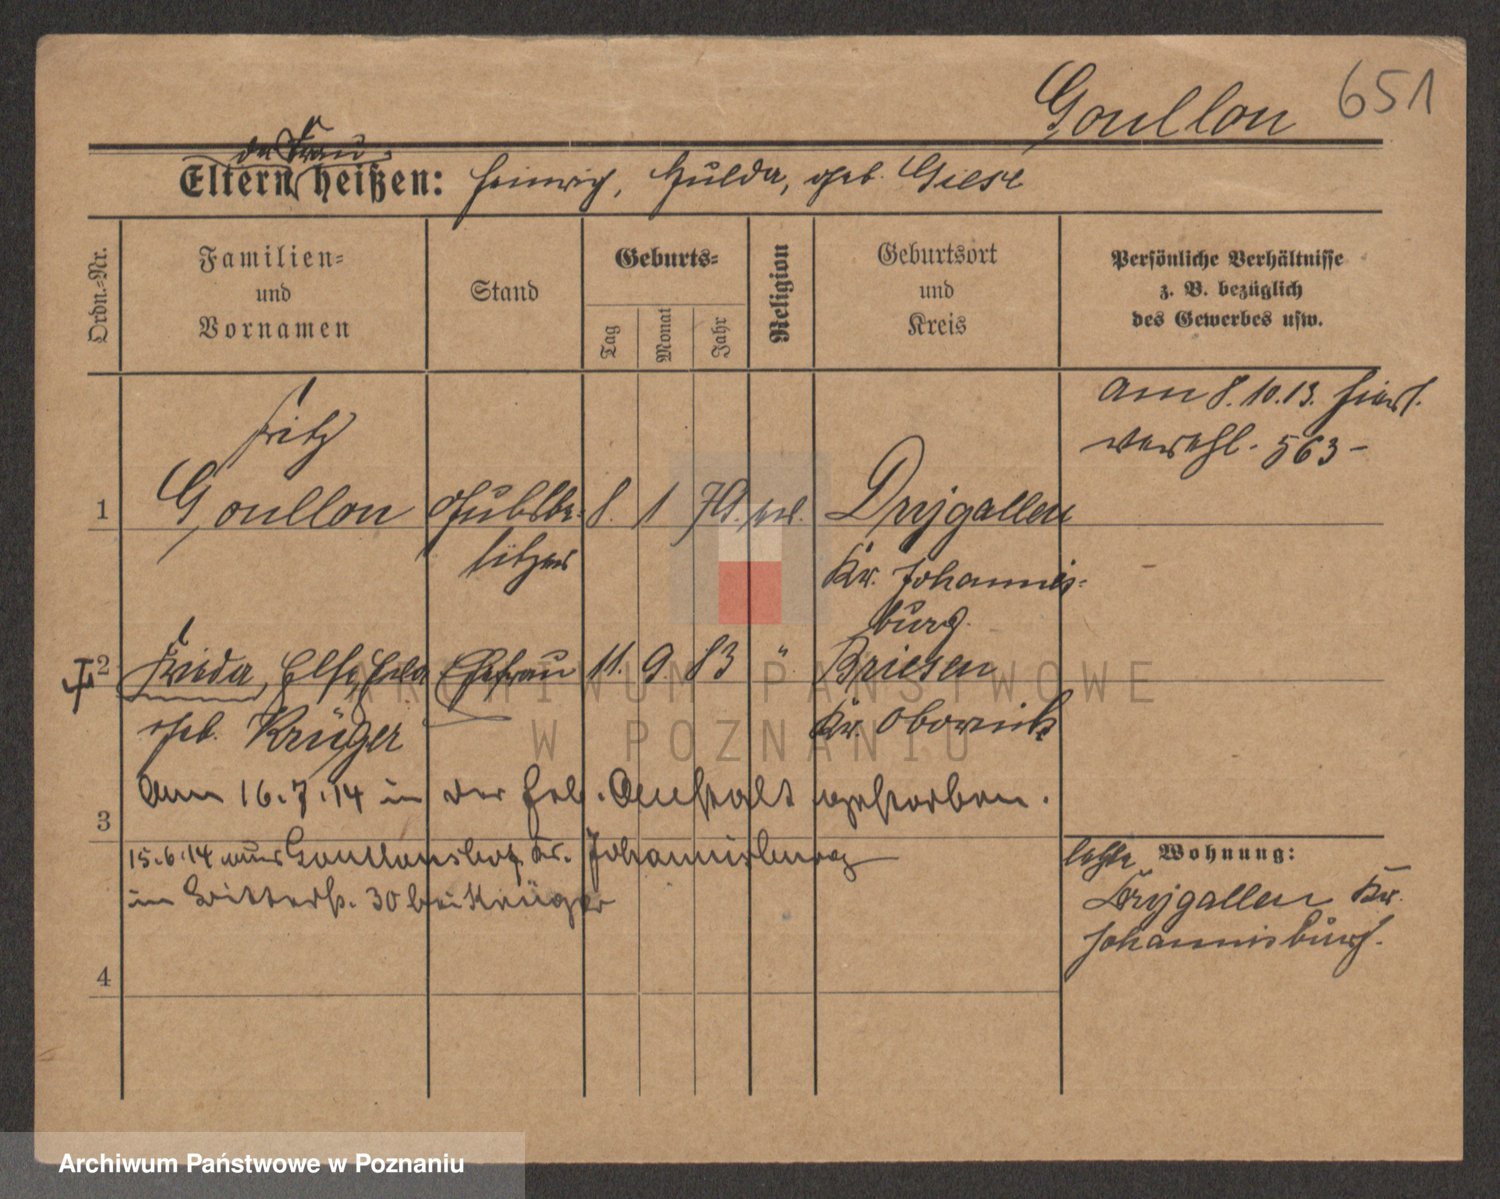 Goullon 651
der Frau
Eltern heißen: Heinrich, Hulda, geb. Giese
Ordn.-Nr.
Familien-
und
Vornamen
Stand
Geburts-
Tag
Monat
Jahr
Religion
Geburtsort
und
Kreis
Persönliche Verhältnisse
z. B. bezüglich
des Gewerbes usw.
am 8.10.13. hier
verehl. 563-
Fritz
1 Goullon Gutsbe- 8. 1 79. ev. Drygallen
sitzer Kr. Johannis-
burg.
2 Frieda, Else, Ehefrau 11. 9. 83 " Briesen
geb. Krüger Kr. Obornik
Am 16.7.14 in der Anstalt gestorben.
3
15.6.14 aus Goullonshof Kr. Johannisburg
in Ritterst. 30 bei Krüger
letzte Wohnung:
Drygallen Kr.
Johannisburg.
4
ARCHIWUM PAŃSTWOWE
W POZNANIU
Archiwum Państwowe w Poznaniu